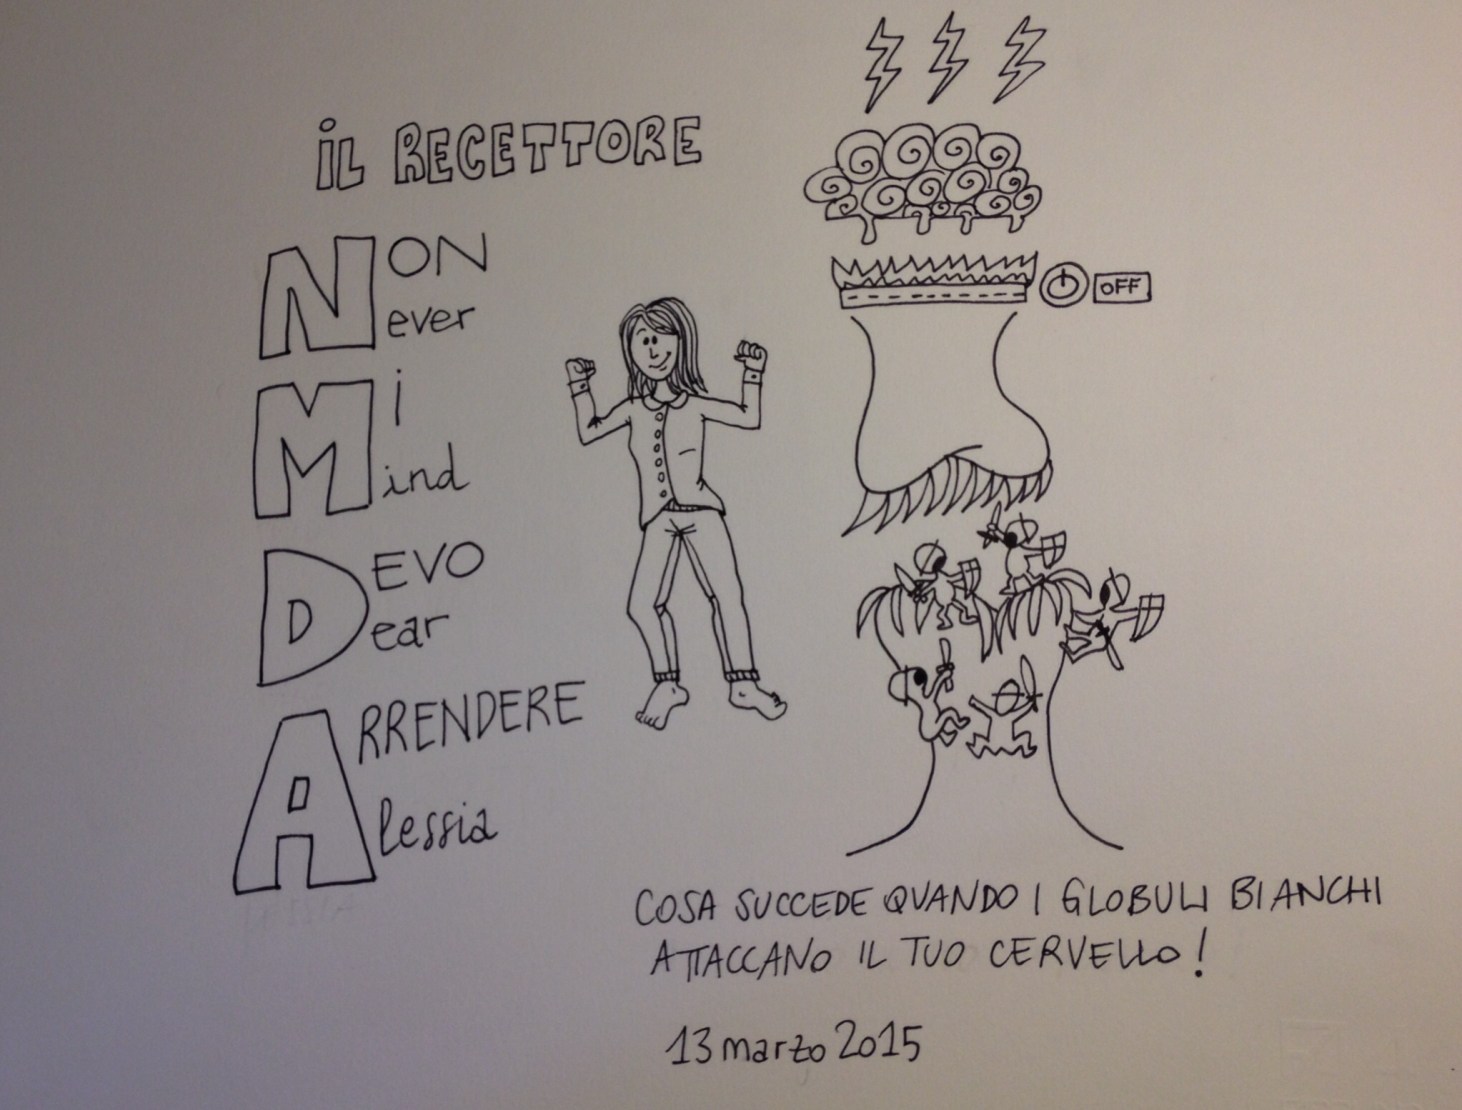 iL RECETTORE
NON
Never
Mi
Mind
DEVO
Dear
ARRENDERE
Alessia
OFF
COSA SUCCEDE QUANDO I GLOBULI BIANCHI
ATTACCANO IL TUO CERVELLO!
13 marzo 2015